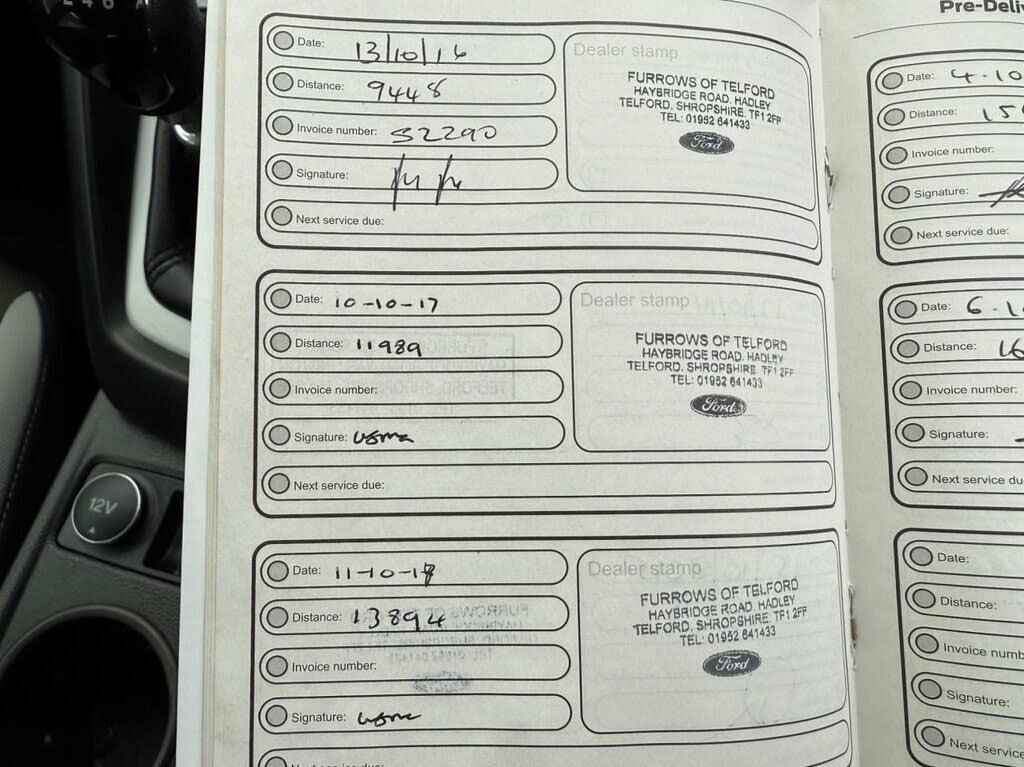 Date: 13/10/16
Distance: 9448
Invoice number: 52290
Signature:
Next service due:
Dealer stamp
FURROWS OF TELFORD
HAYBRIDGE ROAD, HADLEY
TELFORD, SHROPSHIRE, TF1 2FF
TEL: 01952 641433
Ford
Date: 10-10-17
Distance: 11989
Invoice number:
Signature:
Next service due:
Dealer stamp
FURROWS OF TELFORD
HAYBRIDGE ROAD, HADLEY
TELFORD, SHROPSHIRE, TF1 2FF
TEL: 01952 641433
Ford
Date: 11-10-
Distance: 13894
Invoice number:
Signature:
Dealer stamp
FURROWS OF TELFORD
HAYBRIDGE ROAD, HADLEY
TELFORD, SHROPSHIRE, TF1 2FF
TEL: 01952 641433
Ford
Next service due:
Pre-Deliv
Date: 4-10
Distance: 15
Invoice number:
Signature:
Next service due:
Date: 6-1
Distance: 16
Invoice number:
Signature:
Next service du
Date:
Distance:
Invoice numb
Signature:
Next servic
12V